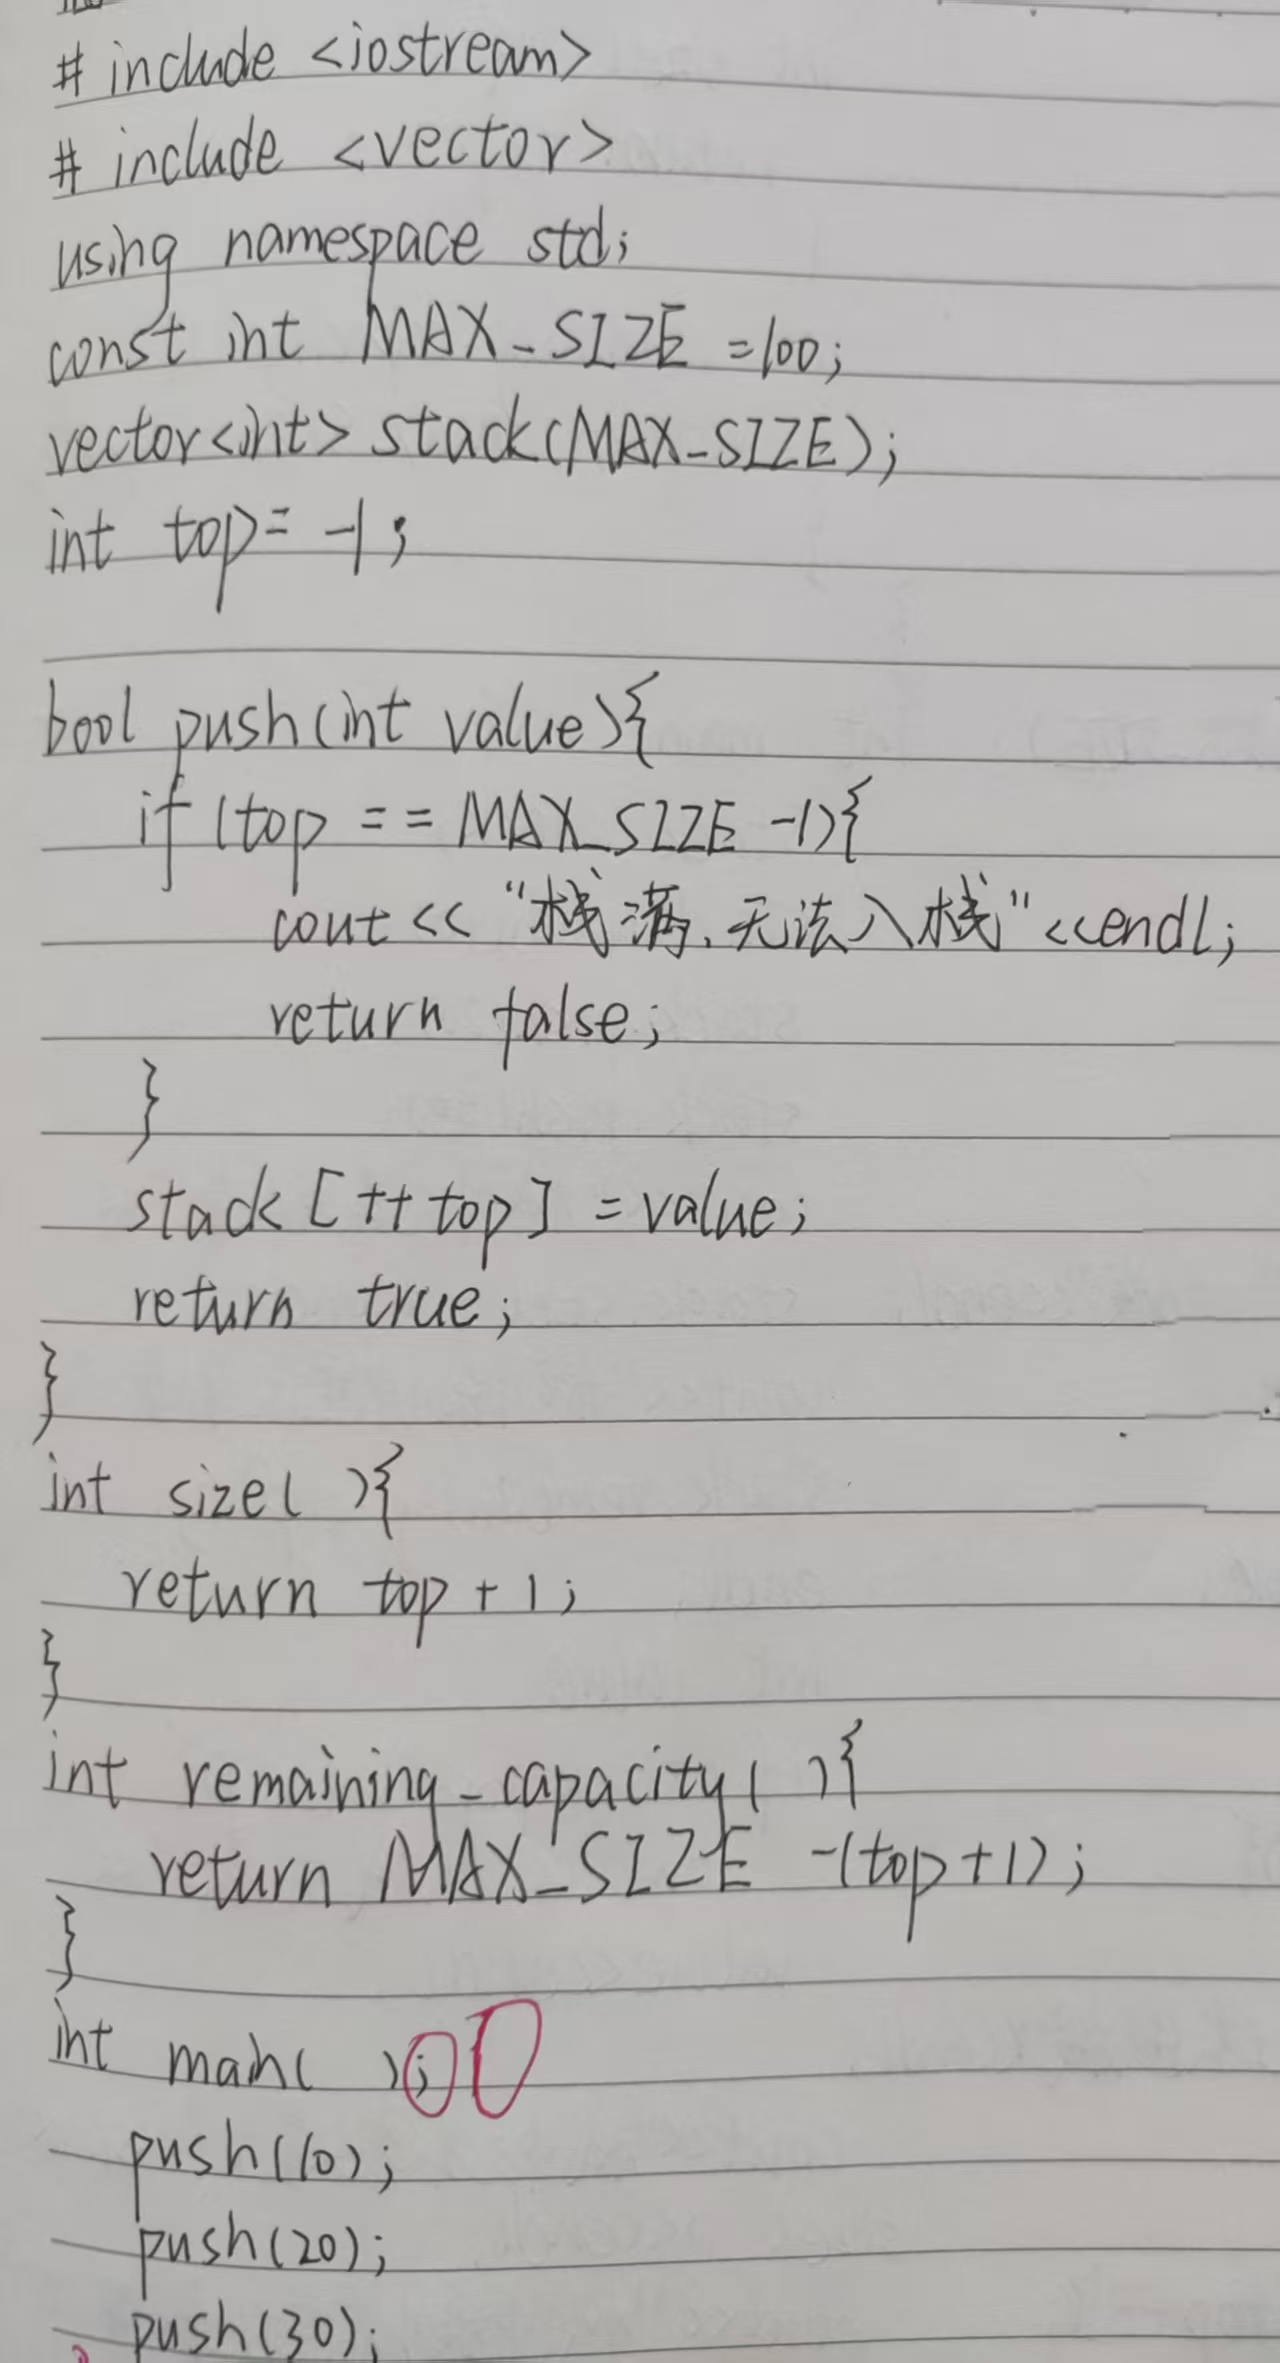 # include <iostream>
# include <vector>
using namespace std;
const int MAX_SIZE =100;
vector<int> stack(MAX_SIZE);
int top= -1;
bool push(int value){
if (top == MAX_SIZE -1){
cout<< "栈满、无法入栈"<<endl;
return false;
}
stack [++top] =value;
return true;
}
int size( ){
return top+1;
}
int remaining_capacity( ){
return MAX_SIZE -(top+1);
}
int main( );
push(10);
push(20);
push(30);